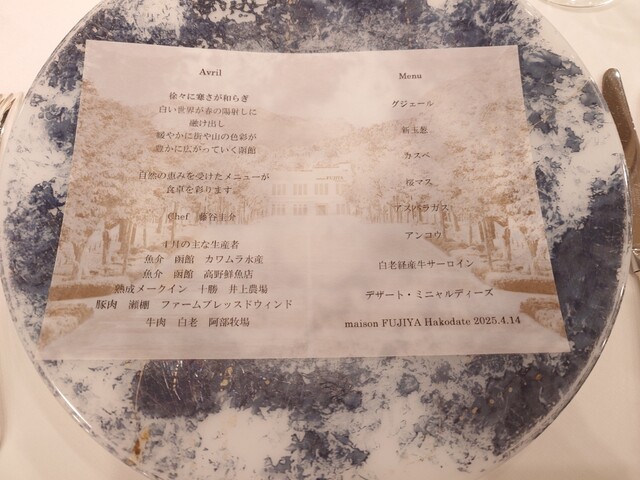 Avril
徐々に寒さが和らぎ
白い世界が春の陽射しに
融け出し
緩やかに街や山の色彩が
豊かに広がっていく函館
自然の恵みを受けたメニューが
食卓を彩ります
Chef 藤谷圭介
4月の主な生産者
魚介 函館 カワムラ水産
魚介 函館 高野鮮魚店
熟成メークイン 十勝 井上農場
豚肉 瀬棚 ファームブレッスドウィンド
牛肉 白老 阿部牧場
Menu
グジェール
新玉葱
カスベ
桜マス
アスパラガス
アンコウ
白老経産牛サーロイン
デザート・ミニャルディーズ
maison FUJIYA Hakodate 2025.4.14